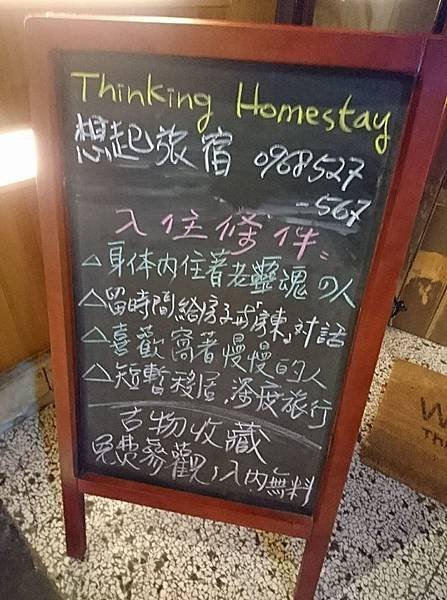 Thinking Homestay
想起旅宿 0968527
-567
入住條件:
△身体內住著老靈魂の人
△留時間給房子或「房東」對話
△喜歡窩著慢慢的人
△短暫移居,深度旅行
古物收藏
免費參觀,入內無料
W
Th